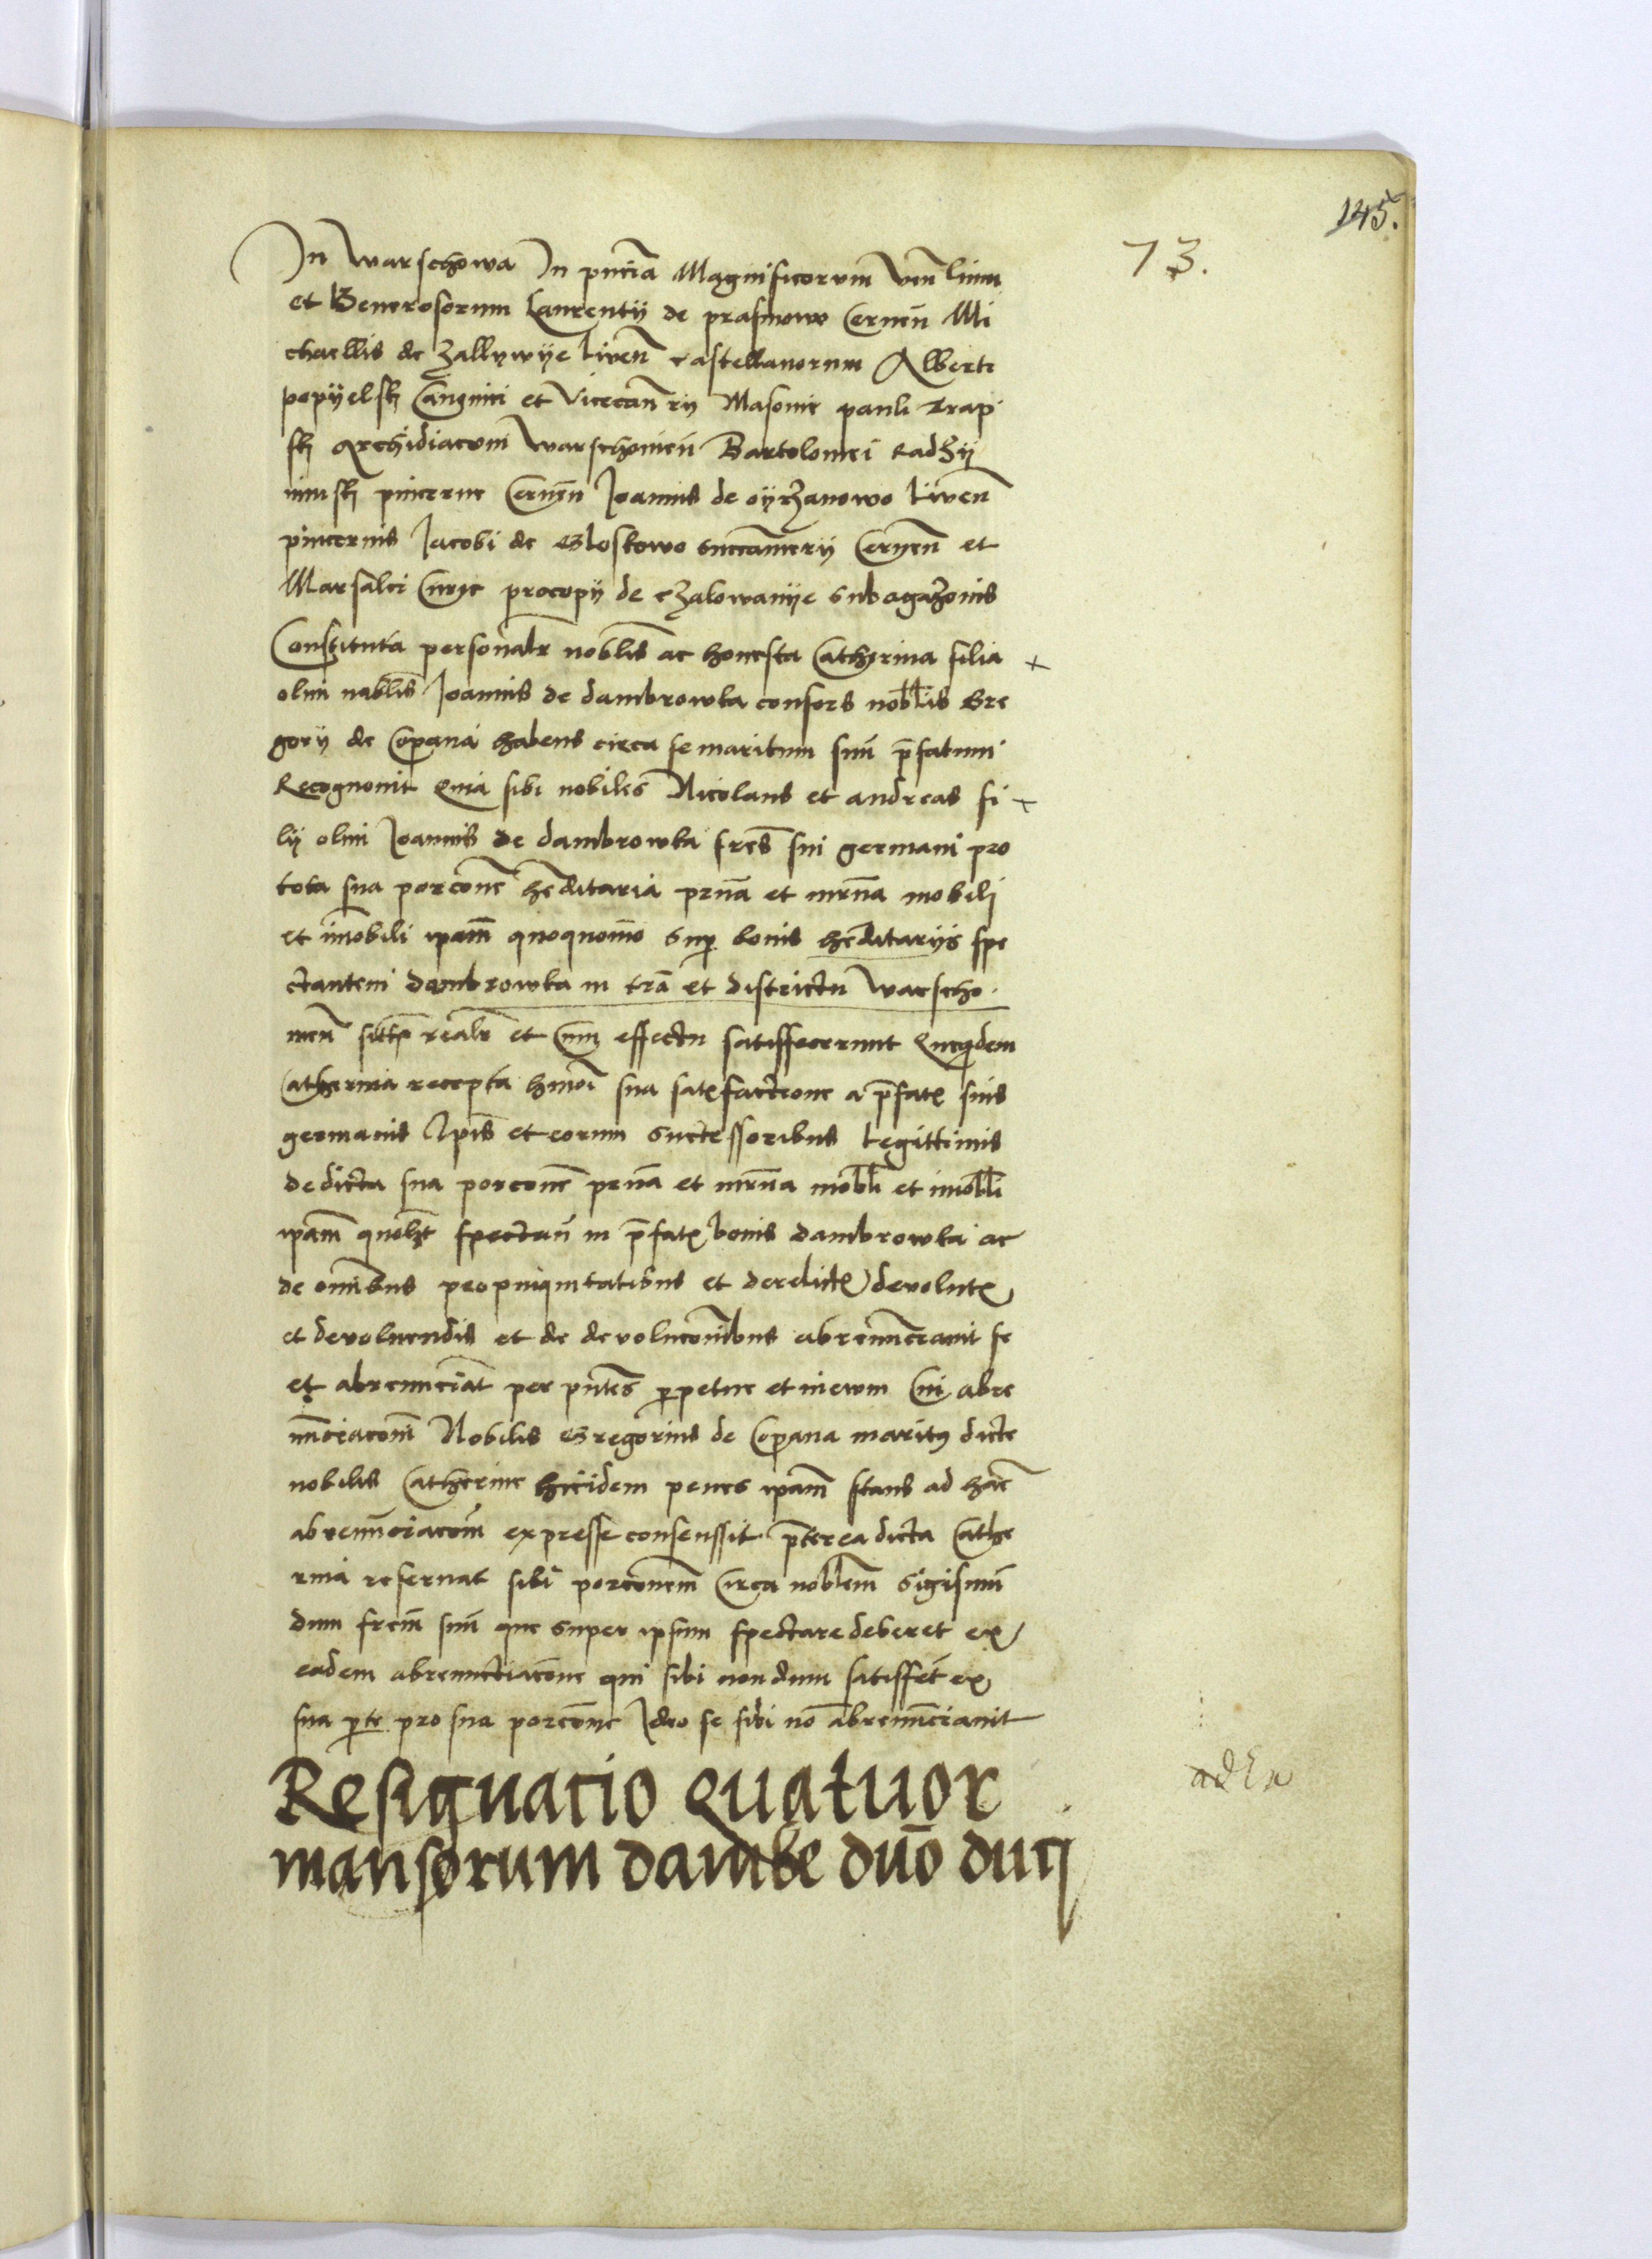 145.
73.
In Warschowa In pntia Magnificorum Vene lium
et Generosorum Laurentij de prasmowo Cernen Mi
chaellis de Zallywye Liven Castellanorum Alberti
popyelsky Canonici et Vicecan rij Masovie pauli Krap
sky Archidiaconi Warschovien Bartolomei Radzy
minsky pincerne Cernen Joannis de oyrzanowo Liven
pincernis Jacobi de Gloskowo succamerij Cernen et
Marsalci Curie procopij de czalowanye subagazonis
Constituta personalr noblis ac honesta Catherina filia
olim noblis Joannis de dambrowka consors nobllis Gre
gory de Coprana habens circa se maritum suu prefatum
Recognovit Quia sibi nobiles Nicolaus et andreas fi
lij olim Joannis de dambrowka fres sui germani pro
tota sua porcone heditaria prna et mrna mobili
et imobili ipam quoquomo sup bonis heditarijs spe
ctantem dambrowka in tra et districtu Warscho
vien realr et cum effectu satisffecerunt Quequidem
Catherina recepta hmoi sua satisfactione a prefatis suis
germanis Ipis et eorum successoribus Legittimis
de dicta sua porcone prna et mrna mobli et imobli
ipam quolzt spectan in prefatis bonis dambrowka ac
de omibus propinquitatibus et derelictis devolutis
et devoluendis et de devoluconibus abrenuncavit se
et abrenunciat per pntes perpetue et in ewum Cui abre
nunciaconi Nobilis Gregorius de Coprana maritus dicte
nobilis Catherine hicidem penes ipam stans ad hanc
abrenunciacom expresse consenssit preterea dicta Cathe
rina reservat sibi porconem Circa noblem Sigismun
dum frem suu que super ipsum spectare deberet ex
eadem abrenuncciacone qui sibi nondum satisffet ex
sua parte pro sua porcone Ideo se sibi no abrenunciavit
Resignacio quatuor
mansorum dambe duo duci